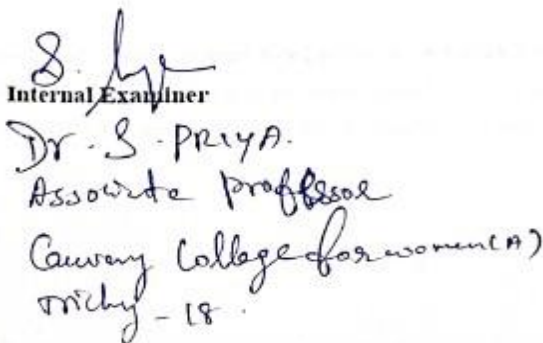 S. Priya
Internal Examiner
Dr. S. PRIYA.
Associate professor
Cauvery College for women (A)
Trichy - 18.